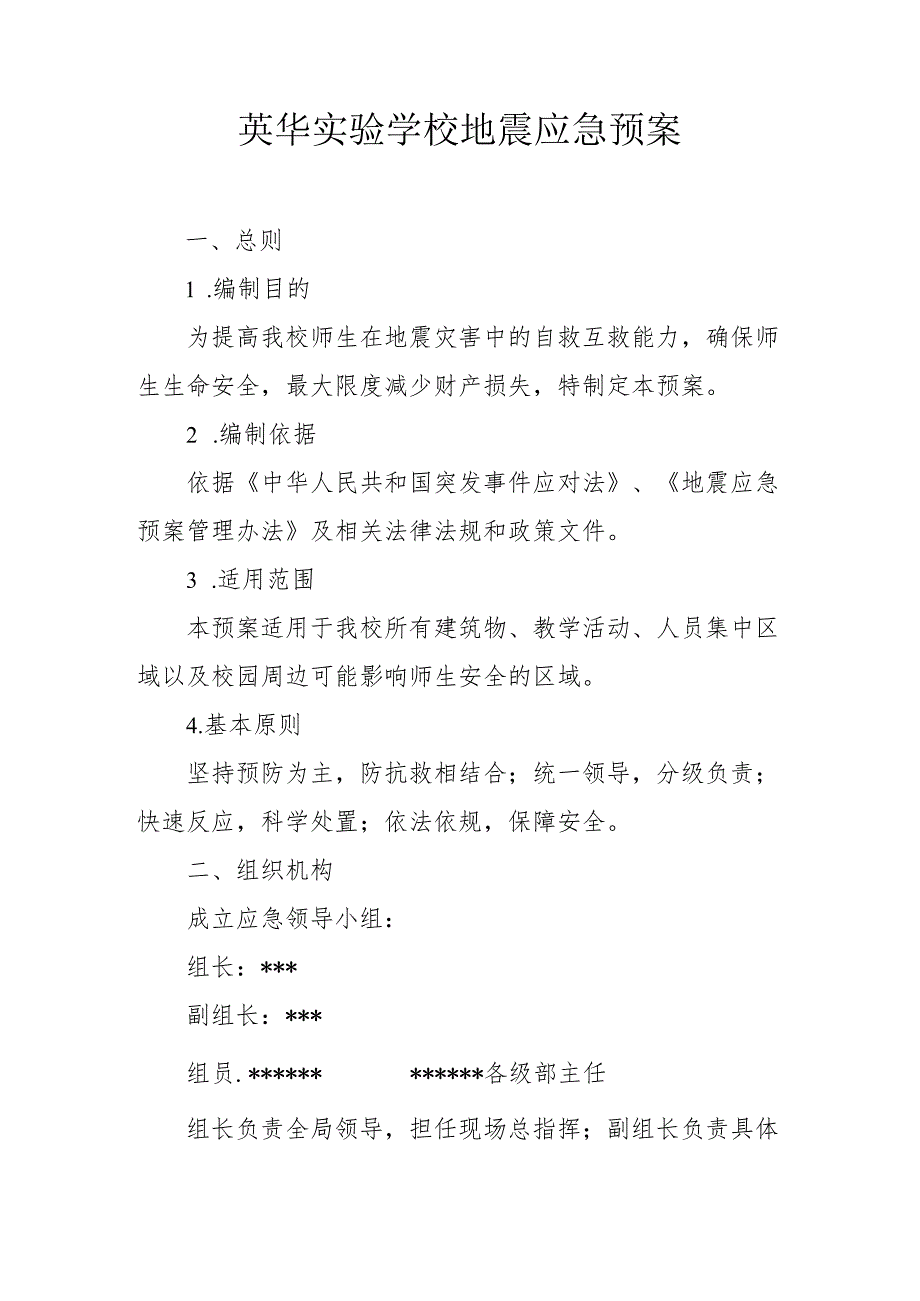 英华实验学校地震应急预案
一、总则
1 .编制目的
为提高我校师生在地震灾害中的自救互救能力，确保师
生生命安全，最大限度减少财产损失，特制定本预案。
2 .编制依据
依据《中华人民共和国突发事件应对法》、《地震应急
预案管理办法》及相关法律法规和政策文件。
3 .适用范围
本预案适用于我校所有建筑物、教学活动、人员集中区
域以及校园周边可能影响师生安全的区域。
4.基本原则
坚持预防为主，防抗救相结合；统一领导，分级负责；
快速反应，科学处置；依法依规，保障安全。
二、组织机构
成立应急领导小组：
组长：***
副组长：***
组员.****** ******各级部主任
组长负责全局领导，担任现场总指挥；副组长负责具体